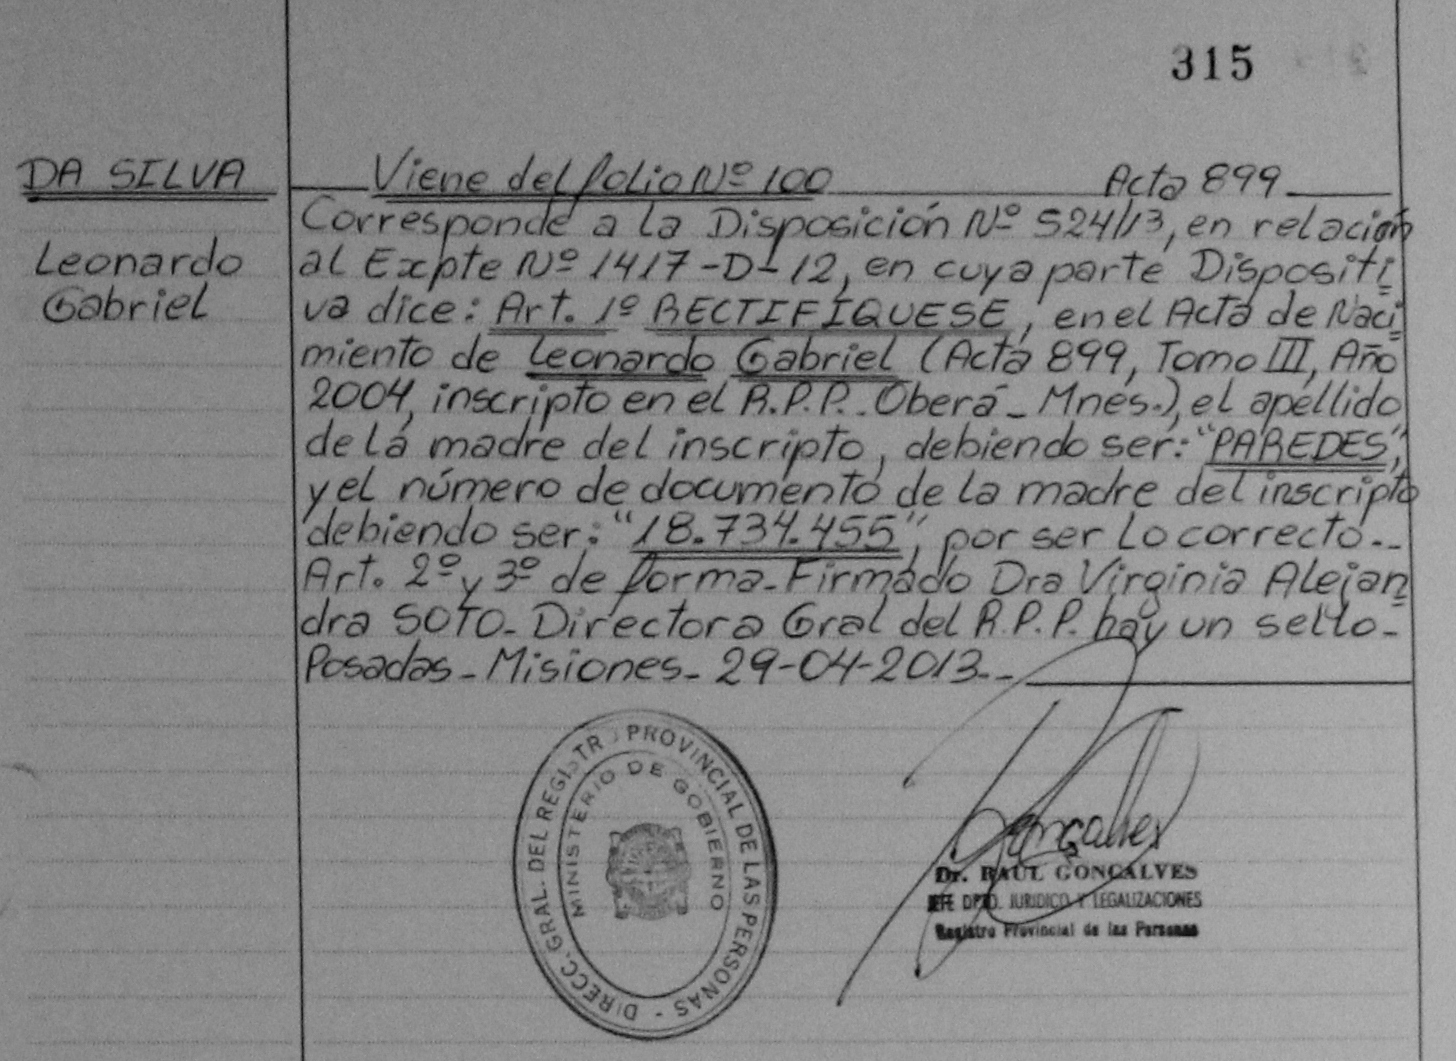 315
DA SILVA
Leonardo
Gabriel
Viene del folio Nº 100 Acta 899
Corresponde a la Disposición Nº 524/13, en relación
al Expte Nº 1417-D-12, en cuya parte Dispositi
va dice: Art. 1º RECTIFÍQUESE, en el Acta de Naci
miento de Leonardo Gabriel (Acta 899, Tomo III, Año
2004, inscripto en el R.P.P. Oberá - Mnes.), el apellido
de la madre del inscripto, debiendo ser: "PAREDES",
y el número de documento de la madre del inscripto
debiendo ser: "18.734.455", por ser lo correcto.-
Art. 2º y 3º de forma - Firmado Dra Virginia Alejan
dra SOTO - Directora Gral del R.P.P. hay un sello -
Posadas - Misiones - 29-04-2013.-
DIRECC. GRAL. DEL REGISTRO PROVINCIAL DE LAS PERSONAS -
MINISTERIO DE GOBIERNO
Gonçalves
Dr. RAUL GONÇALVES
JEFE DPTO. JURIDICO Y LEGALIZACIONES
Registro Provincial de las Personas